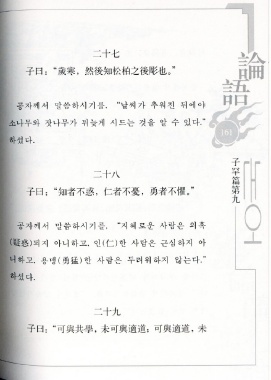 二十七
子曰: “歲寒, 然後知松柏之後彫也。”
공자께서 말씀하시기를, “날씨가 추워진 뒤에야
소나무와 잣나무가 뒤늦게 시드는 것을 알 수 있다.”
하셨다.
二十八
子曰: “知者不惑, 仁者不憂, 勇者不懼。”
공자께서 말씀하시기를, “지혜로운 사람은 의혹
(疑惑)되지 아니하고, 인(仁)한 사람은 근심하지 아
니하고, 용맹(勇猛)한 사람은 두려워하지 않는다.”
하셨다.
二十九
子曰: “可與共學, 未可與適道; 可與適道, 未
論語
161
子罕篇第九